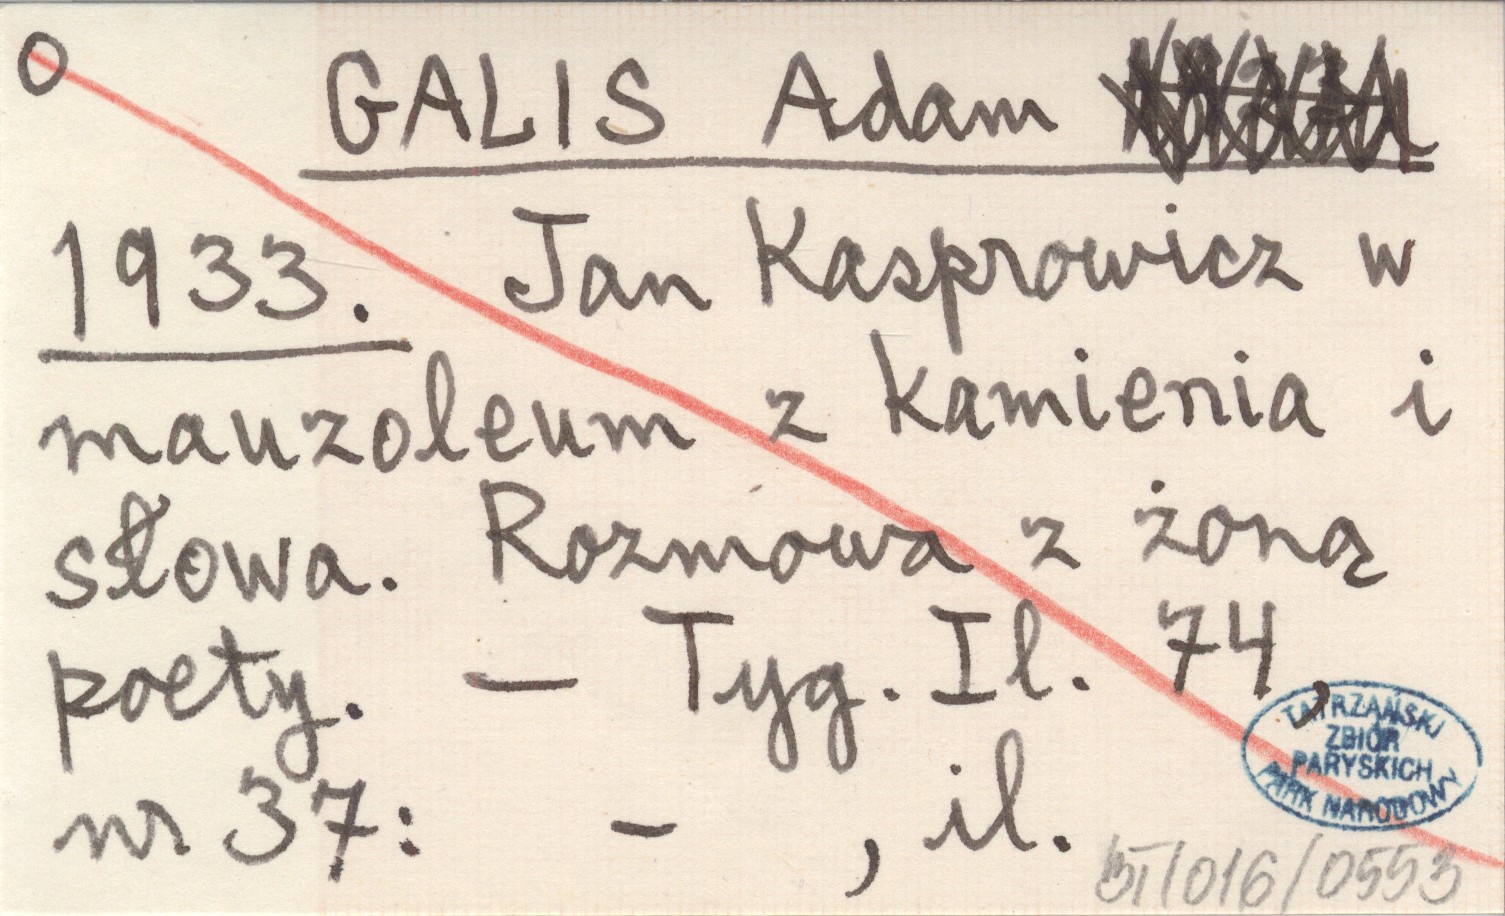 GALIS Adam
1933. Jan Kasprowicz w
mauzoleum z kamienia i
słowa. Rozmowa z żoną
poety. — Tyg. Il. 74,
nr 37: - , il.
TATRZAŃSKI
ZBIÓR
PARYSKICH
PARK NARODOWY
/016/0553